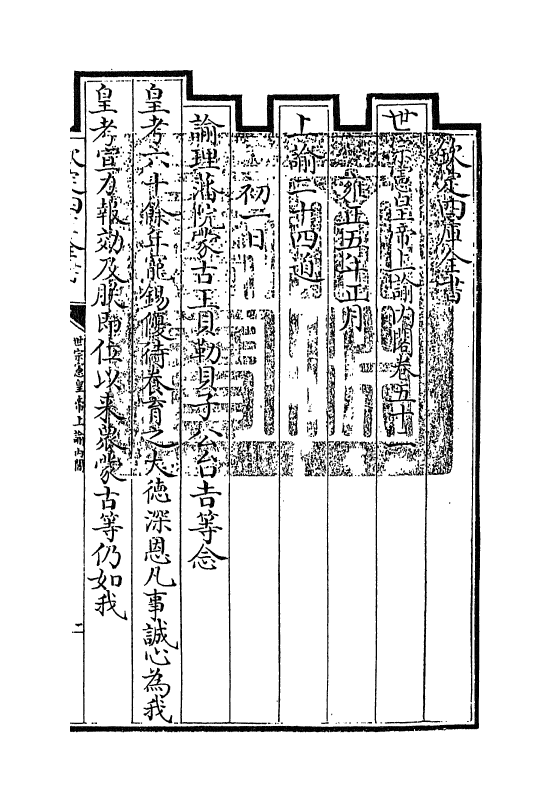 欽定四庫全書
世宗憲皇帝上諭內閣卷五十二
雍正五年正月
上諭二十四道
初一日
諭理藩院蒙古王貝勒貝子公台吉等念
皇考六十餘年寵錫優待養育之大德深恩凡事誠心為我
皇考宣力報効及朕即位以來衆蒙古等仍如我
欽定四庫全書
世宗憲皇帝上諭內閣